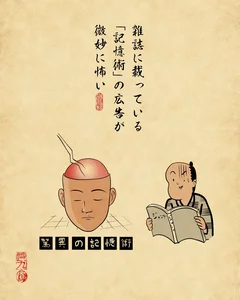 雑誌に載っている
「記憶術」の広告が
微妙に怖い
驚異の記憶術